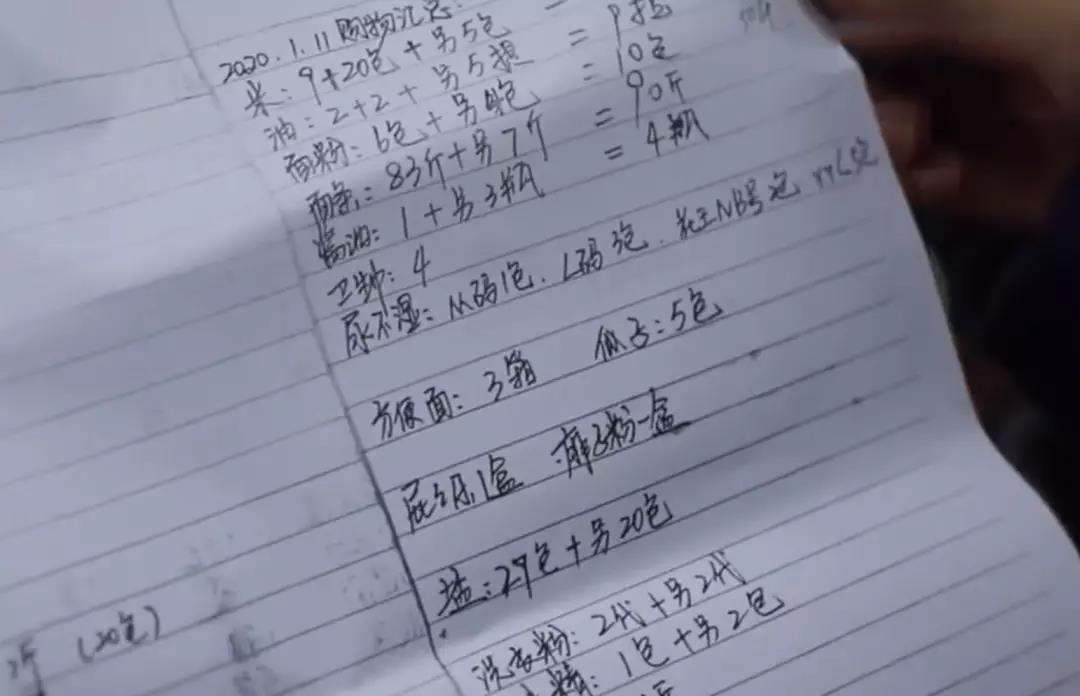 2020.1.11 购物汇总:
米: 9+20包 + 另5包 =
油: 2+2 + 另5提 = 9提
面粉: 6包 + 另4包 = 10包
面条: 83斤 + 另7斤 = 90斤
酱油: 1 + 另3瓶 = 4瓶
卫生巾: 4
尿不湿: M码1包、L码3包、花王NB号 包
方便面: 3箱 纸子: 5包
屁屁乐1盒 痱子粉一盒
盐: 29包 + 另20包
洗衣粉: 2代 + 另2代
糖: 1包 + 另2包
斤 (20包)